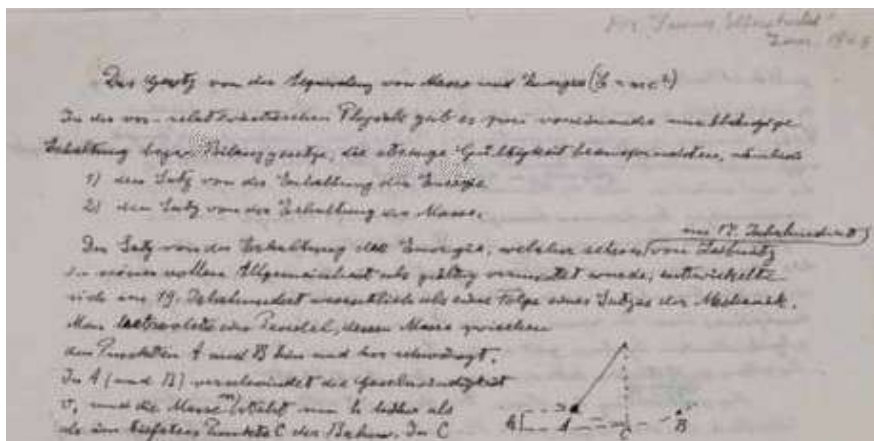 Das Gesetz von der Äquivalenz von Masse und Energie (E = mc²)
In der vor-relativistischen Physik gab es zwei voneinander unabhängige
Erhaltung bezw. Bilanzgesetze, die strenge Gültigkeit beanspruchten, nämlich
1) den Satz von der Erhaltung der Energie
2) den Satz von der Erhaltung der Masse.
im 17. Jahrhundert
Der Satz von der Erhaltung der Energie, welcher schon von Leibnitz
in seiner vollen Allgemeinheit als gültig vermutet wurde, entwickelte
sich im 19. Jahrhundert wesentlich als eine Folge eines Satzes der Mechanik.
Man betrachte ein Pendel, dessen Masse zwischen
den Punkten A und B hin und her schwingt.
In A (und B) verschwindet die Geschwindigkeit
v, und die Masse m steht um h höher als
als im tiefsten Punkte C der Bahn. In C
h A C B